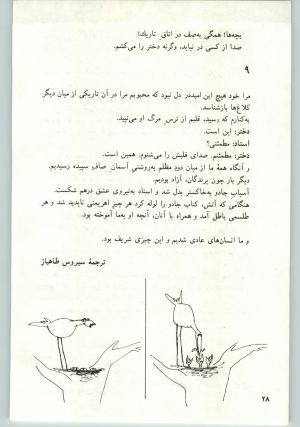 بچه‌ها! همگی به‌صف در اتاق تاریك!
صدا از کسی در نیاید، وگرنه دختر را می‌کشم.
۹
مرا خود هیچ این امید در دل نبود که محبوبم مرا در آن تاریکی از میان دیگر
کلاغ‌ها بازشناسد.
به‌کنارم که رسید، قلبم از ترس مرگ او می‌تپید.
دختر: این است.
استاد: مطمئنی؟
دختر: مطمئنم. صدای قلبش را می‌شنوم. همین است.
و آنگاه همهٔ ما از میان دود مظلم به‌روشنی آسمان صاف سپیده رسیدیم.
دیگر بار چون پرندگان، آزاد بودیم.
آسیاب جادو به‌خاکستر بدل شد و استاد به‌نیروی عشق درهم شکست.
هنگامی که آتش، کتاب جادو را لوله کرد هر چیز اهریمنی ناپدید شد و هر
طلسمی باطل آمد و همراه با آنان، آنچه او به‌ما آموخته بود.
و ما انسان‌های عادی شدیم و این چیزی شریف بود.
ترجمهٔ سیروس طاهباز
۲۸